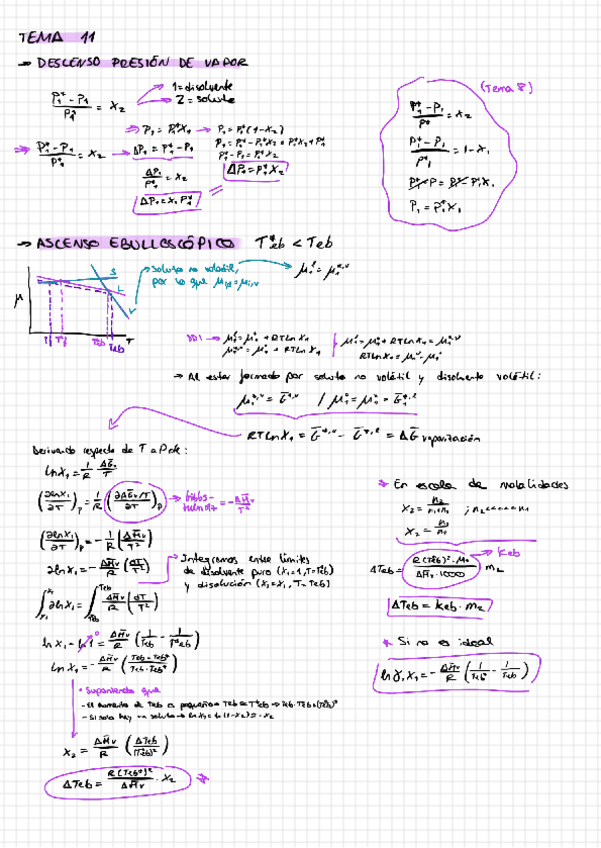 TEMA 11
→ DESCENSO PRESIÓN DE VAPOR
(Tema 8)
(P₁* - P₁)/P₁* = X₂
1= disolvente
2 = soluto
⇒ P₁ = P₁*X₁ → P₁ = P₁*(1-X₂)
P₁ = P₁* - P₁*X₂
P₁* - P₁ = P₁*X₂
ΔP₁ = P₁*X₂
⇒ (P₁* - P₁)/P₁* = X₂ → ΔP₁ = P₁* - P₁
ΔP₁/P₁* = X₂
ΔP₁ = X₂ P₁*
(P₁* - P₁)/P₁* = X₂
(P₁* - P₁)/P₁* = 1 - X₁
P₁ = P₁* X₁
→ ASCENSO EBULLOSCÓPICO T*eb < Teb
μ
S
L
V
T
→ soluto no volátil,
por lo que
DD1 →
→ Al estar formado por soluto no volátil y disolvente volátil:
RT ln X₁ = G̅*,ᵛ - G̅*,ˡ = ΔG̅ vaporización
Derivando respecto de T a P cte:
ln X₁ = 1/R ΔG̅v/T
(∂lnX₁/∂T)p = 1/R (∂ΔG̅v/T/∂T)p → Gibbs-Helmholtz = -ΔH̅v/T²
(∂lnX₁/∂T)p = -1/R (ΔH̅v/T²)
∂lnX₁ = -ΔH̅v/R (∂T/T²)
→ Integramos entre límites
de disolvente puro (X₁=1, T=T*eb)
y disolución (X₁=X₁, T=Teb)
ln X₁ - ln 1 = ΔH̅v/R (1/Teb - 1/T*eb)
ln X₁ = -ΔH̅v/R (Teb - Teb*/Teb·Teb*)
• Suponiendo que
- El aumento de Teb es pequeño → Teb ≈ T*eb → Teb·Teb* = (Teb*)²
- Si solo hay un soluto → ln X₁ = ln(1-X₂) ≈ -X₂
X₂ = ΔH̅v/R (ΔTeb/(Teb*)²)
ΔTeb = R(Teb*)²/ΔH̅v · X₂ *
* En escala de molalidades
X₂ = n₂/(n₁+n₂) ; n₂ <<<<< n₁
X₂ = n₂/n₁
→ Keb
ΔTeb = (R(Teb*)²·M₁/ΔH̅v·1000) m₂
ΔTeb = Keb · m₂
* Si no es ideal
ln γ₁X₁ = -ΔH̅v/R (1/Teb* - 1/Teb)